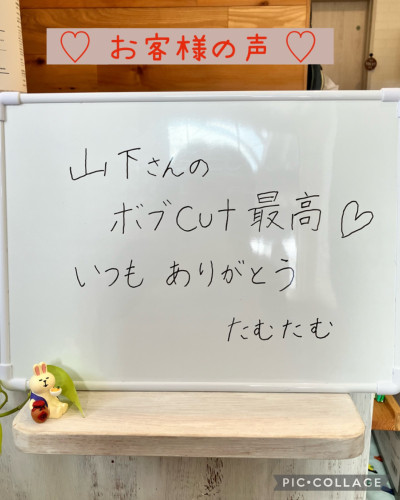 ♡ お客様の声 ♡
山下さんの
ボブCut最高♡
いつもありがとう
たむたむ
PIC•COLLAGE